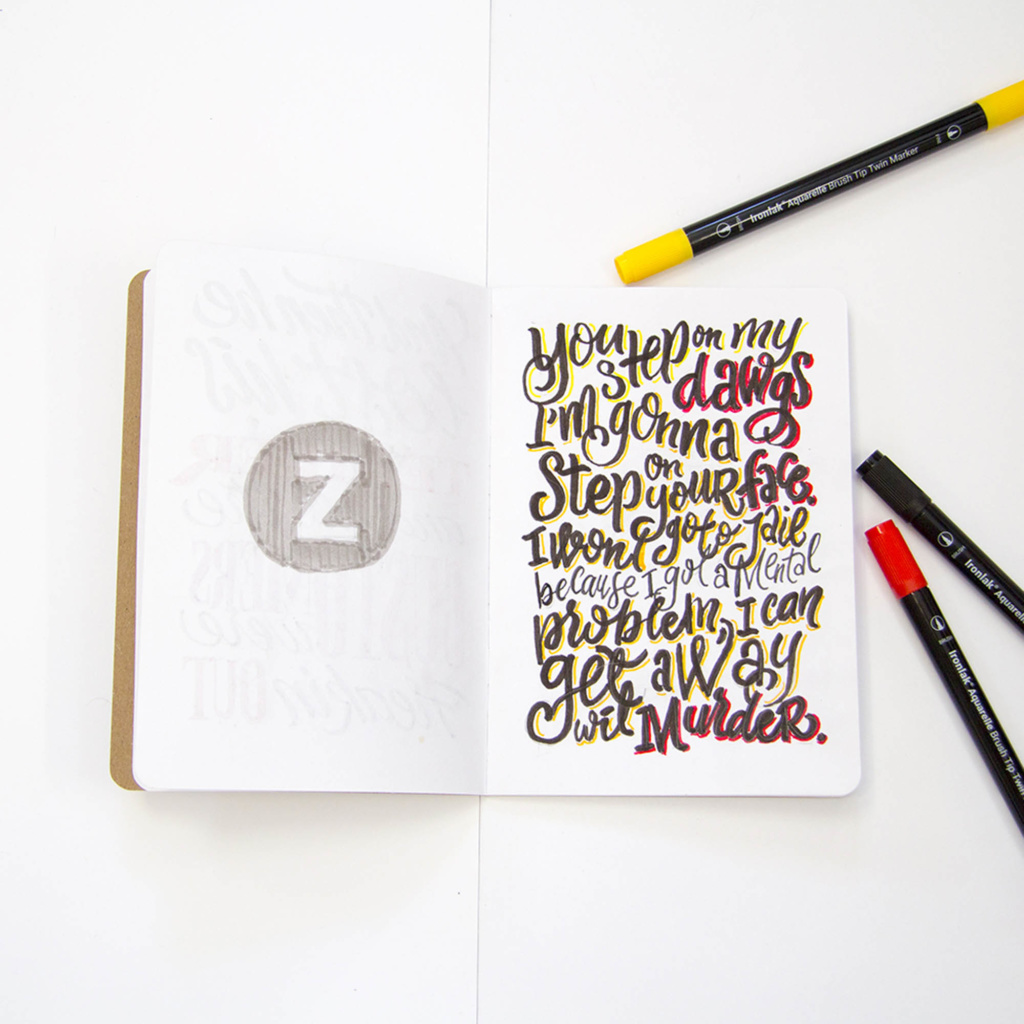 Z
You step on my
dawgs
I'm gonna
Step on your face.
I won't go to Jail
because I got a Mental
problem, I can
get away
wit Murder.
Ironlak® Aquarelle Brush Tip Twin Marker
Ironlak® Aquarelle
Ironlak® Aquarelle Brush Tip Twin